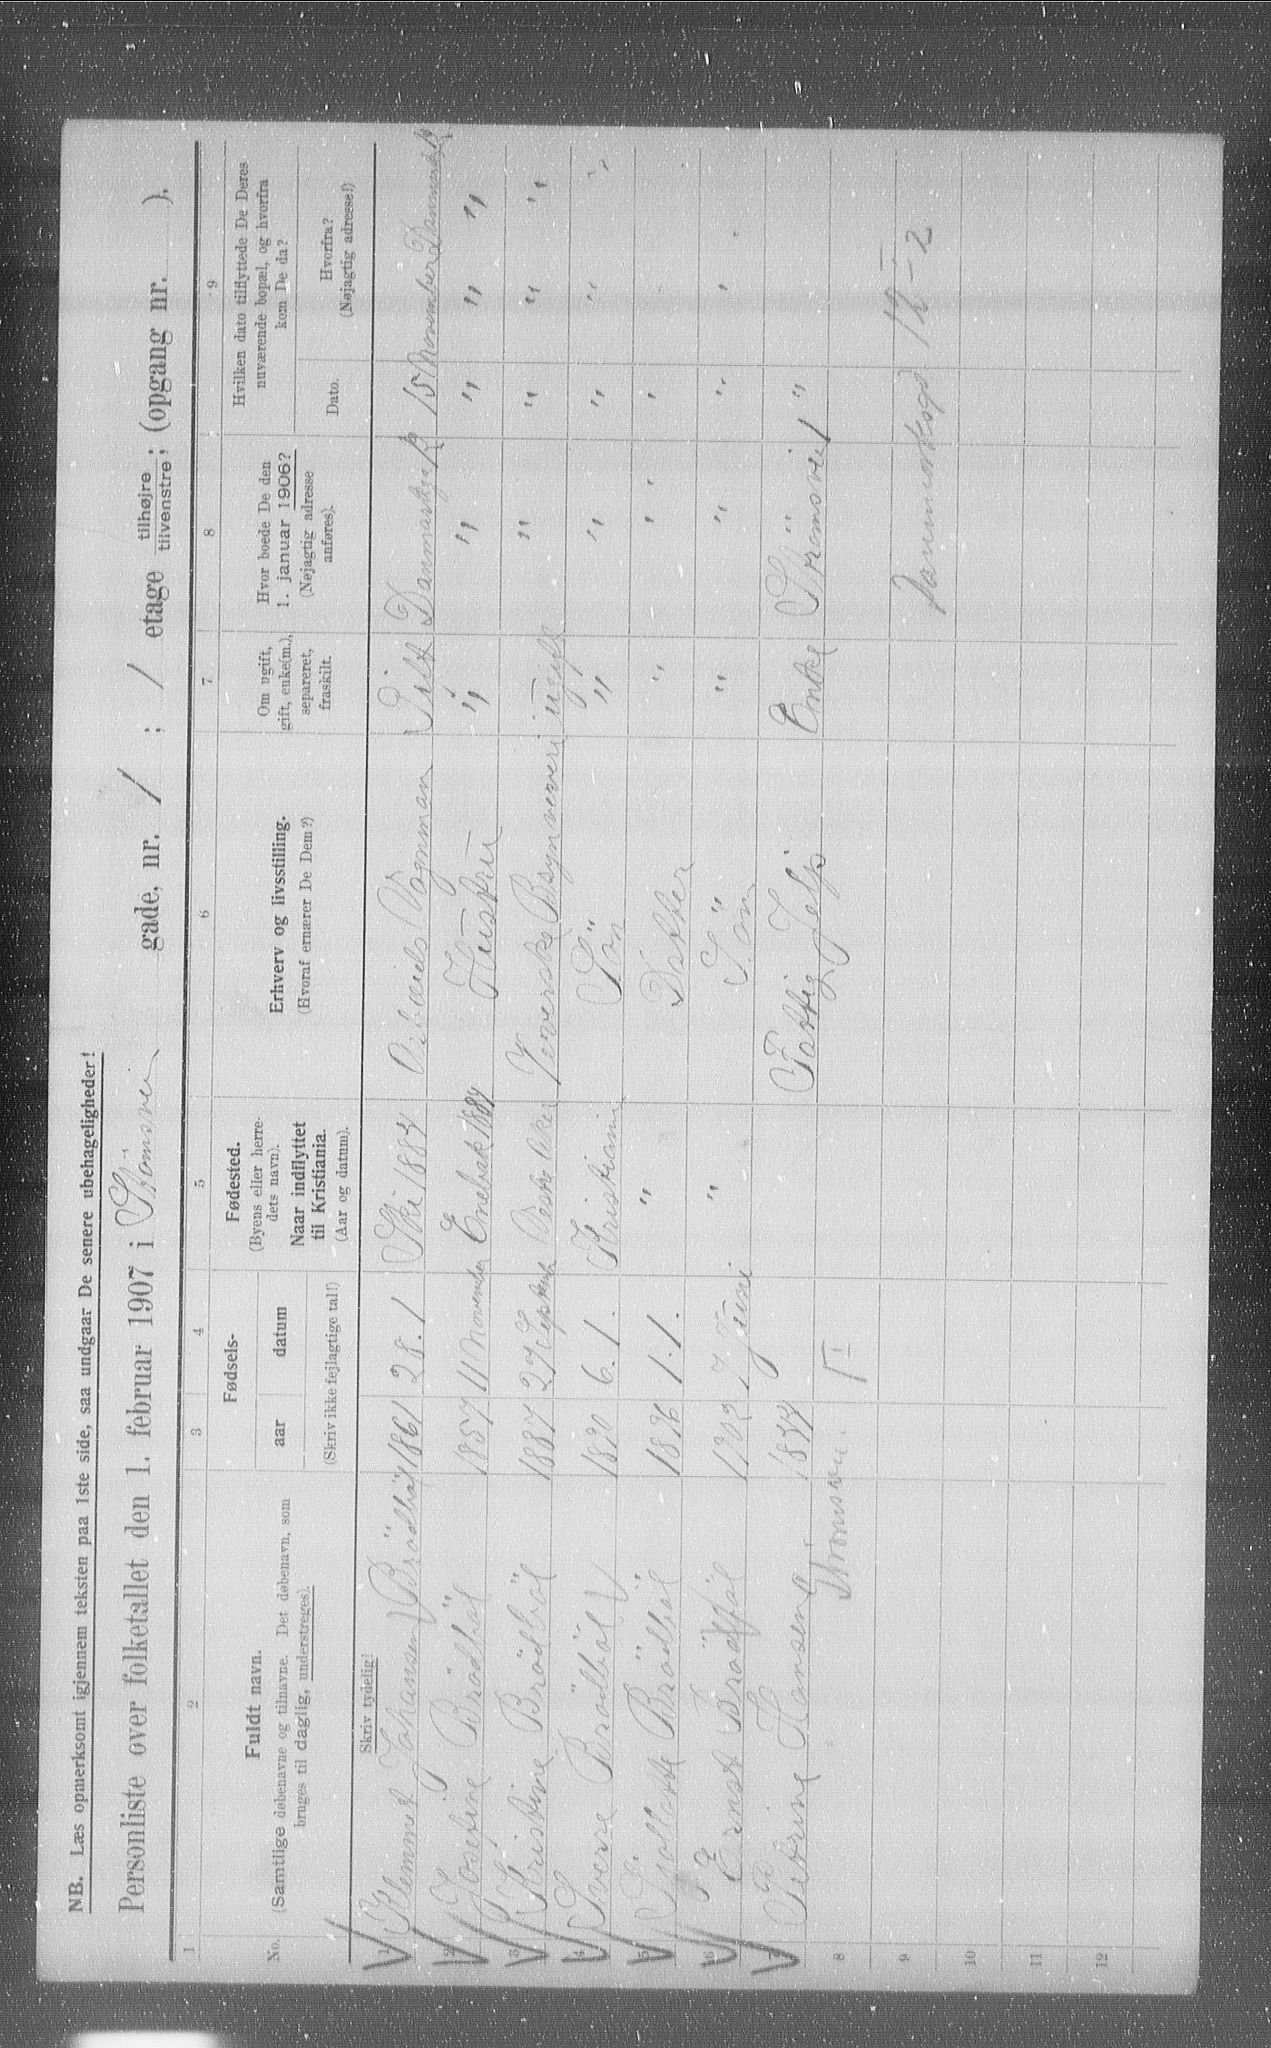 NB. Læs opmerksomt igjennem teksten paa 1ste side, saa undgaar De senere ubehageligheder!
Personliste over folketallet den 1. februar 1907 i Strömsvei gade, nr. 1 ; 1 etage tilhøjre tilvenstre; (opgang nr. ).
1 2 3 4 5 6 7 8 9
No. Fuldt navn. (Samtlige døbenavne og tilnavne. Det døbenavn, som bruges til daglig, understreges).
Fødsels- aar datum (Skriv ikke fejlagtige tal!)
Fødested. (Byens eller herredets navn). Naar indflyttet til Kristiania. (Aar og datum).
Erhverv og livsstilling. (Hvoraf ernærer De Dem?)
Om ugift, gift, enke(m.), separeret, fraskilt.
Hvor boede De den 1. januar 1906? (Nøjagtig adresse anføres).
Hvilken dato tilflyttede De Deres nuværende bopæl, og hvorfra kom De da?
Dato. Hvorfra? (Nøjagtig adresse!)
Skriv tydelig!
1 Klemmet Johansen Brödböl 1861 28. 1 Ski 1884 Arbeids Vognman Gift 15 November
2 Josefine Brödböl 1857 11 November Enebak Hustru " " " "
3 Kristine Brödböl 1887 27 Vestre Aker ugift " " " "
4 Sverre Brödböl 1890 6. 1. Kristiania Sön " " " " "
5 Brödböl 1896 1. 1. " Datter " " " "
6 Ernst Juni " Sön " " " " "
7 Petrine Hansen 1844 Fattig Enke Strömsvei 1 "
8 Strömsvei 1
9 12-2
10
11
12